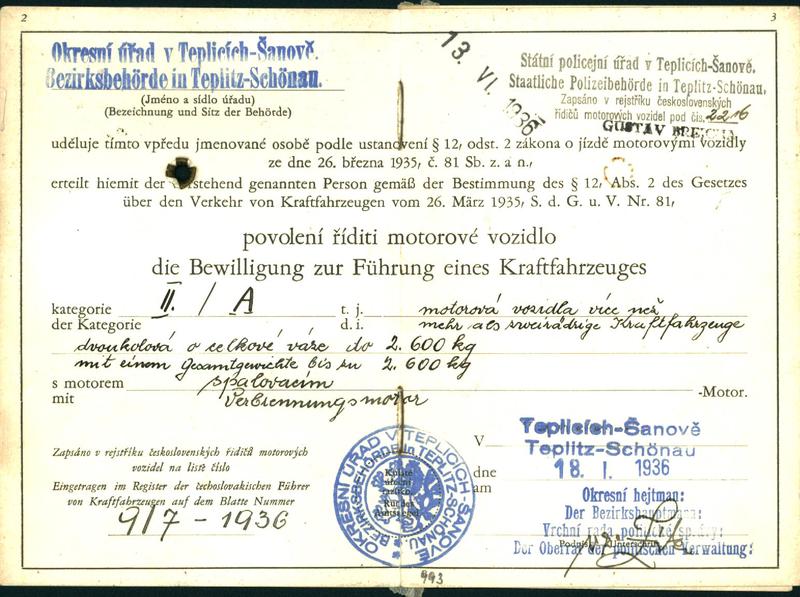 2
3
Okresní úřad v Teplicích-Šanově.
Bezirksbehörde in Teplitz-Schönau.
(Jméno a sídlo úřadu)
(Bezeichnung und Sitz der Behörde)
13. VI. 1936
Státní policejní úřad v Teplicích-Šanově.
Staatliche Polizeibehörde in Teplitz-Schönau,
Zapsáno v rejstříku československých
řidičů motorových vozidel pod čís. 2216
GUSTAV
uděluje tímto vpředu jmenované osobě podle ustanovení § 12, odst. 2 zákona o jízdě motorovými vozidly
ze dne 26. března 1935, č. 81 Sb. z. a n.,
erteilt hiemit der vorstehend genannten Person gemäß der Bestimmung des § 12, Abs. 2 des Gesetzes
über den Verkehr von Kraftfahrzeugen vom 26. März 1935, S. d. G. u. V. Nr. 81,
povolení říditi motorové vozidlo
die Bewilligung zur Führung eines Kraftfahrzeuges
kategorie II. / A t. j. motorová vozidla více než
der Kategorie d. i. mehr als zweirädrige Kraftfahrzeuge
dvoukolová o celkové váze do 2.600 kg
mit einem Gesamtgewichte bis zu 2.600 kg
s motorem spalovacím
mit Verbrennungsmotor -Motor.
Zapsáno v rejstříku československých řidičů motorových
vozidel na listě číslo
Eingetragen im Register der čechoslovakischen Führer
von Kraftfahrzeugen auf dem Blatte Nummer
917 - 1936
OKRESNÍ ÚŘAD V TEPLICÍCH-ŠANOVĚ
BEZIRKSBEHÖRDE in TEPLITZ-SCHÖNAU
Kulaté
úřední
razítko.
V Teplicích-Šanově
Teplitz-Schönau
dne 18. I. 1936
am
Okresní hejtman:
Der Bezirkshauptmann:
Vrchní rada politické správy:
Der Oberrat der politischen Verwaltung:
993